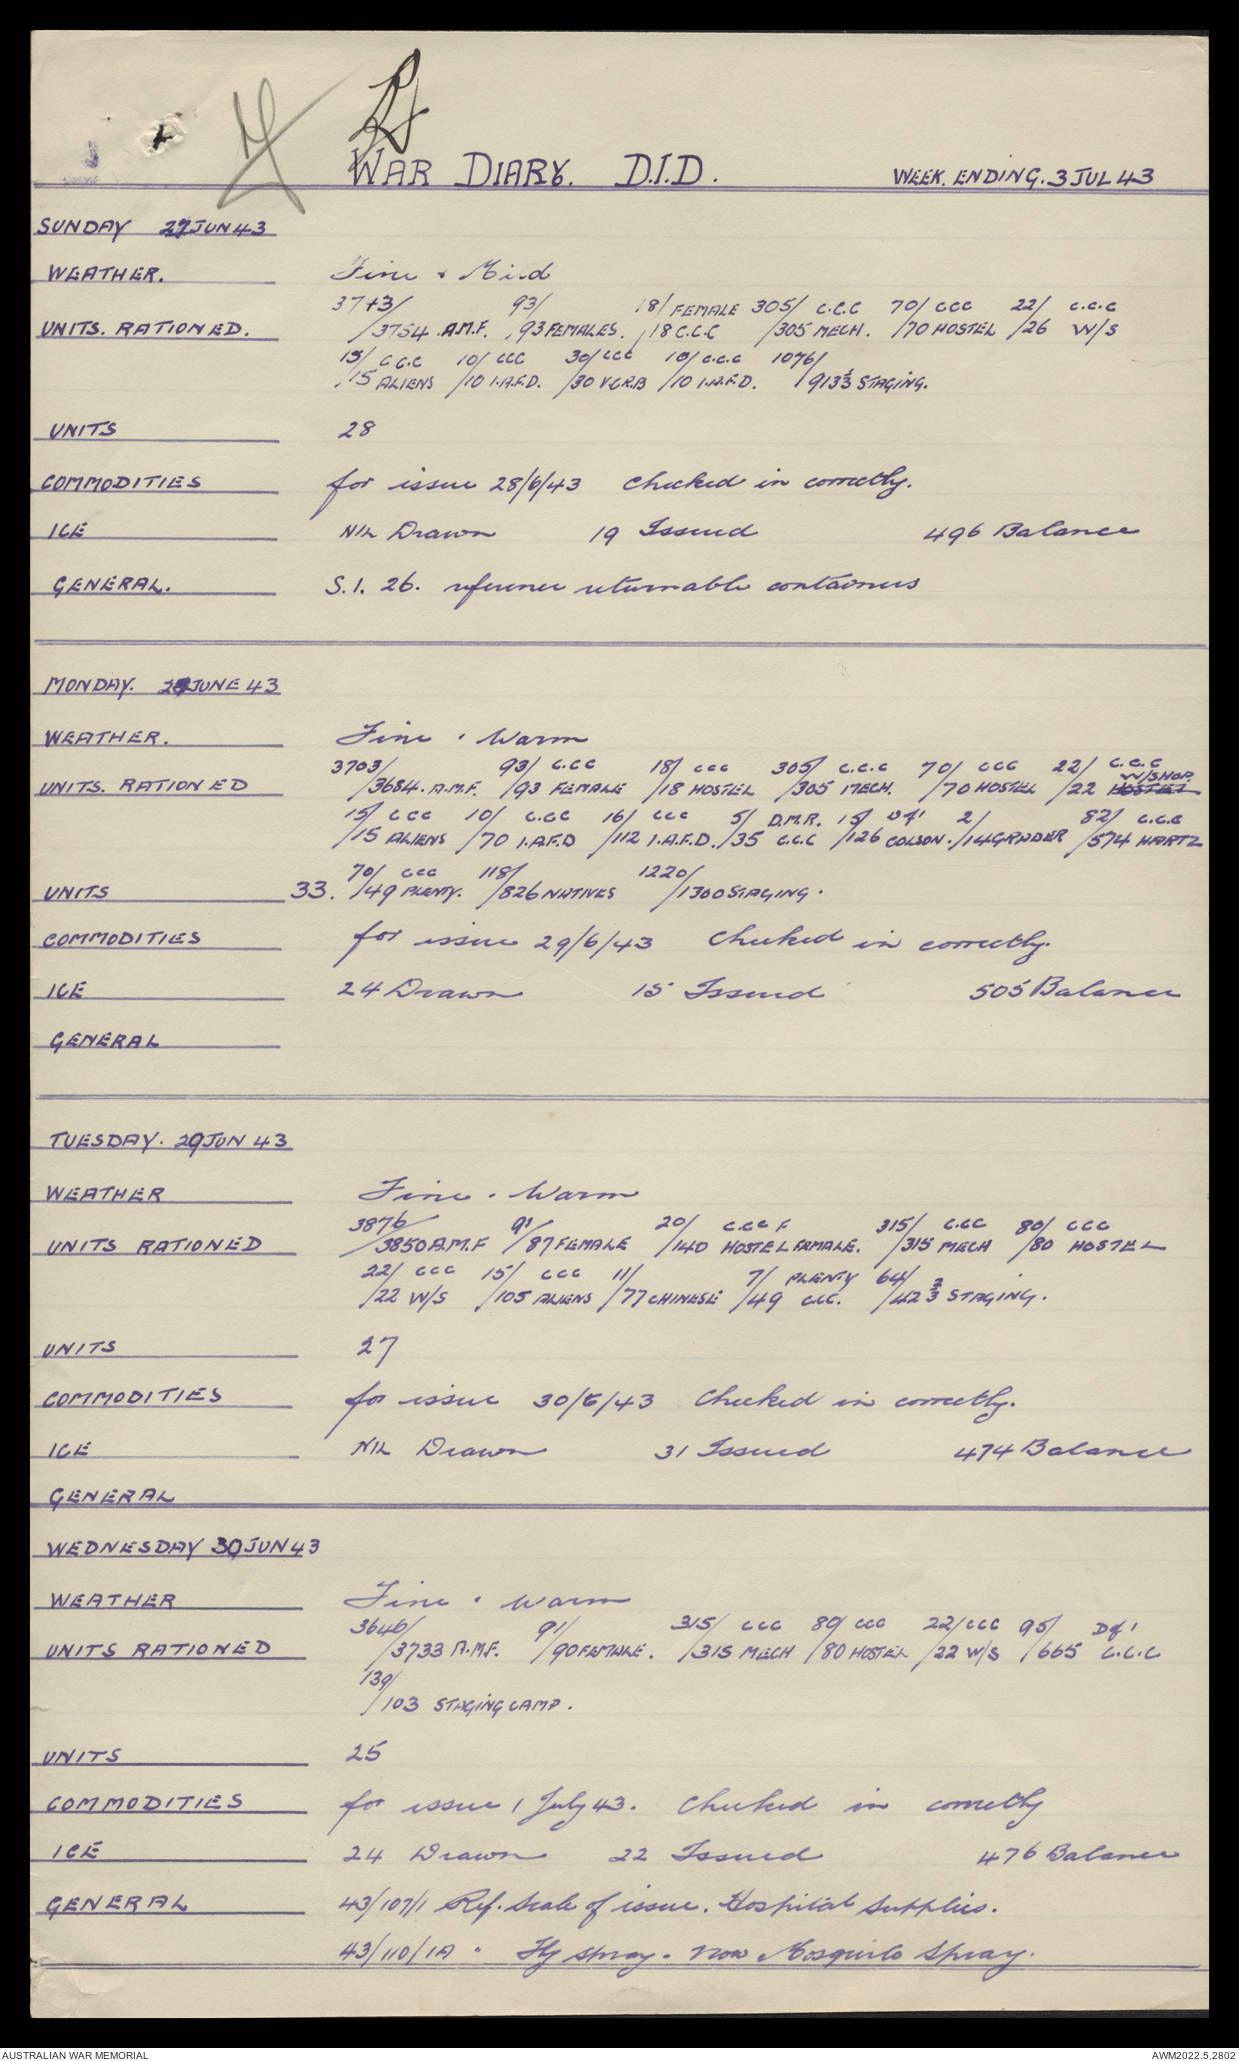 WAR DIARY. D.I.D. WEEK. ENDING. 3 JUL 43
SUNDAY 27 JUN 43
WEATHER. Fine & Mild
3743/ 93/ 18/ FEMALE 305/ C.C.C 70/ CCC 22/ C.C.C
UNITS. RATIONED. /3754 A.M.F. /93 FEMALES. /18 C.C.C /305 MECH. /70 HOSTEL /26 W/S
15/ C.C.C 10/ CCC 30/ CCC 10/ C.C.C 1076/
/15 ALIENS /10 I.A.F.D. /30 /10 I.A.F.D. /913⅓ STAGING.
UNITS 28
COMMODITIES for issue 28/6/43 checked in correctly.
ICE NIL Drawn 19 Issued 496 Balance
GENERAL. S.1. 26. reference returnable containers
MONDAY. 28 JUNE 43
WEATHER. Fine & Warm
3703/ 93/ C.CC 18/ CCC 305/ C.C.C 70/ CCC 22/ C.C.C
W/SHOP
UNITS. RATIONED /3684. A.M.F. /93 FEMALE /18 HOSTEL /305 MECH. /70 HOSTEL /22 HOSTEL
15/ CCC 10/ C.CC 16/ CCC 5/ D.M.R. 18/ 2/ 82/ C.C.C
/15 ALIENS /70 I.A.F.D /112 I.A.F.D. /35 C.C.C /126 COLSON. /14 GRADER /574 HARTZ
70/ CCC 118/ 1220/
UNITS 33. /49 PLENTY. /826 NATIVES /1300 STAGING.
COMMODITIES for issue 29/6/43 checked in correctly.
ICE 24 Drawn 15 Issued 505 Balance
GENERAL
TUESDAY. 29 JUN 43
WEATHER Fine & Warm
3876/ 91/ 20/ C.CC F 315/ C.CC 80/ CCC
UNITS RATIONED /3850 A.M.F /87 FEMALE /140 HOSTEL FEMALE. /315 MECH /80 HOSTEL
22/ CCC 15/ CCC 11/ 7/ PLENTY 64/
/22 W/S /105 ALIENS /77 CHINESE /49 C.C. /42⅔ STAGING.
UNITS 27
COMMODITIES for issue 30/6/43 checked in correctly.
ICE NIL Drawn 31 Issued 474 Balance
GENERAL
WEDNESDAY 30 JUN 43
WEATHER Fine & Warm
3646/ 91/ 315/ CCC 80/ CCC 22/ CCC 95/
UNITS RATIONED /3733 A.M.F. /90 FEMALE. /315 MECH /80 HOSTEL /22 W/S /665 C.C.C
139/
/103 STAGING CAMP.
UNITS 25
COMMODITIES for issue 1 July 43. checked in correctly
ICE 24 Drawn 22 Issued 476 Balance
GENERAL 43/107/1 Ref. Scale of issue. Hospital Supplies.
43/110/1A " Fly spray. now Mosquito Spray.
AUSTRALIAN WAR MEMORIAL AWM2022.5.2802